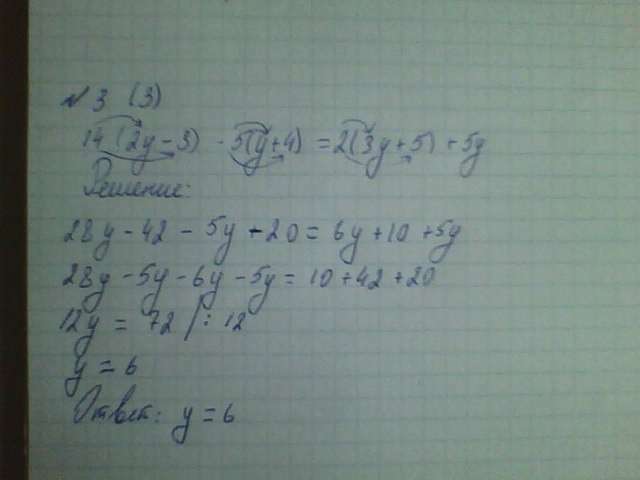 №3 (3)
14(2y-3) - 5(y+4) = 2(3y+5) + 5y
Решение:
28y - 42 - 5y - 20 = 6y + 10 + 5y
28y - 5y - 6y - 5y = 10 + 42 + 20
12y = 72 /: 12
y = 6
Ответ: y = 6